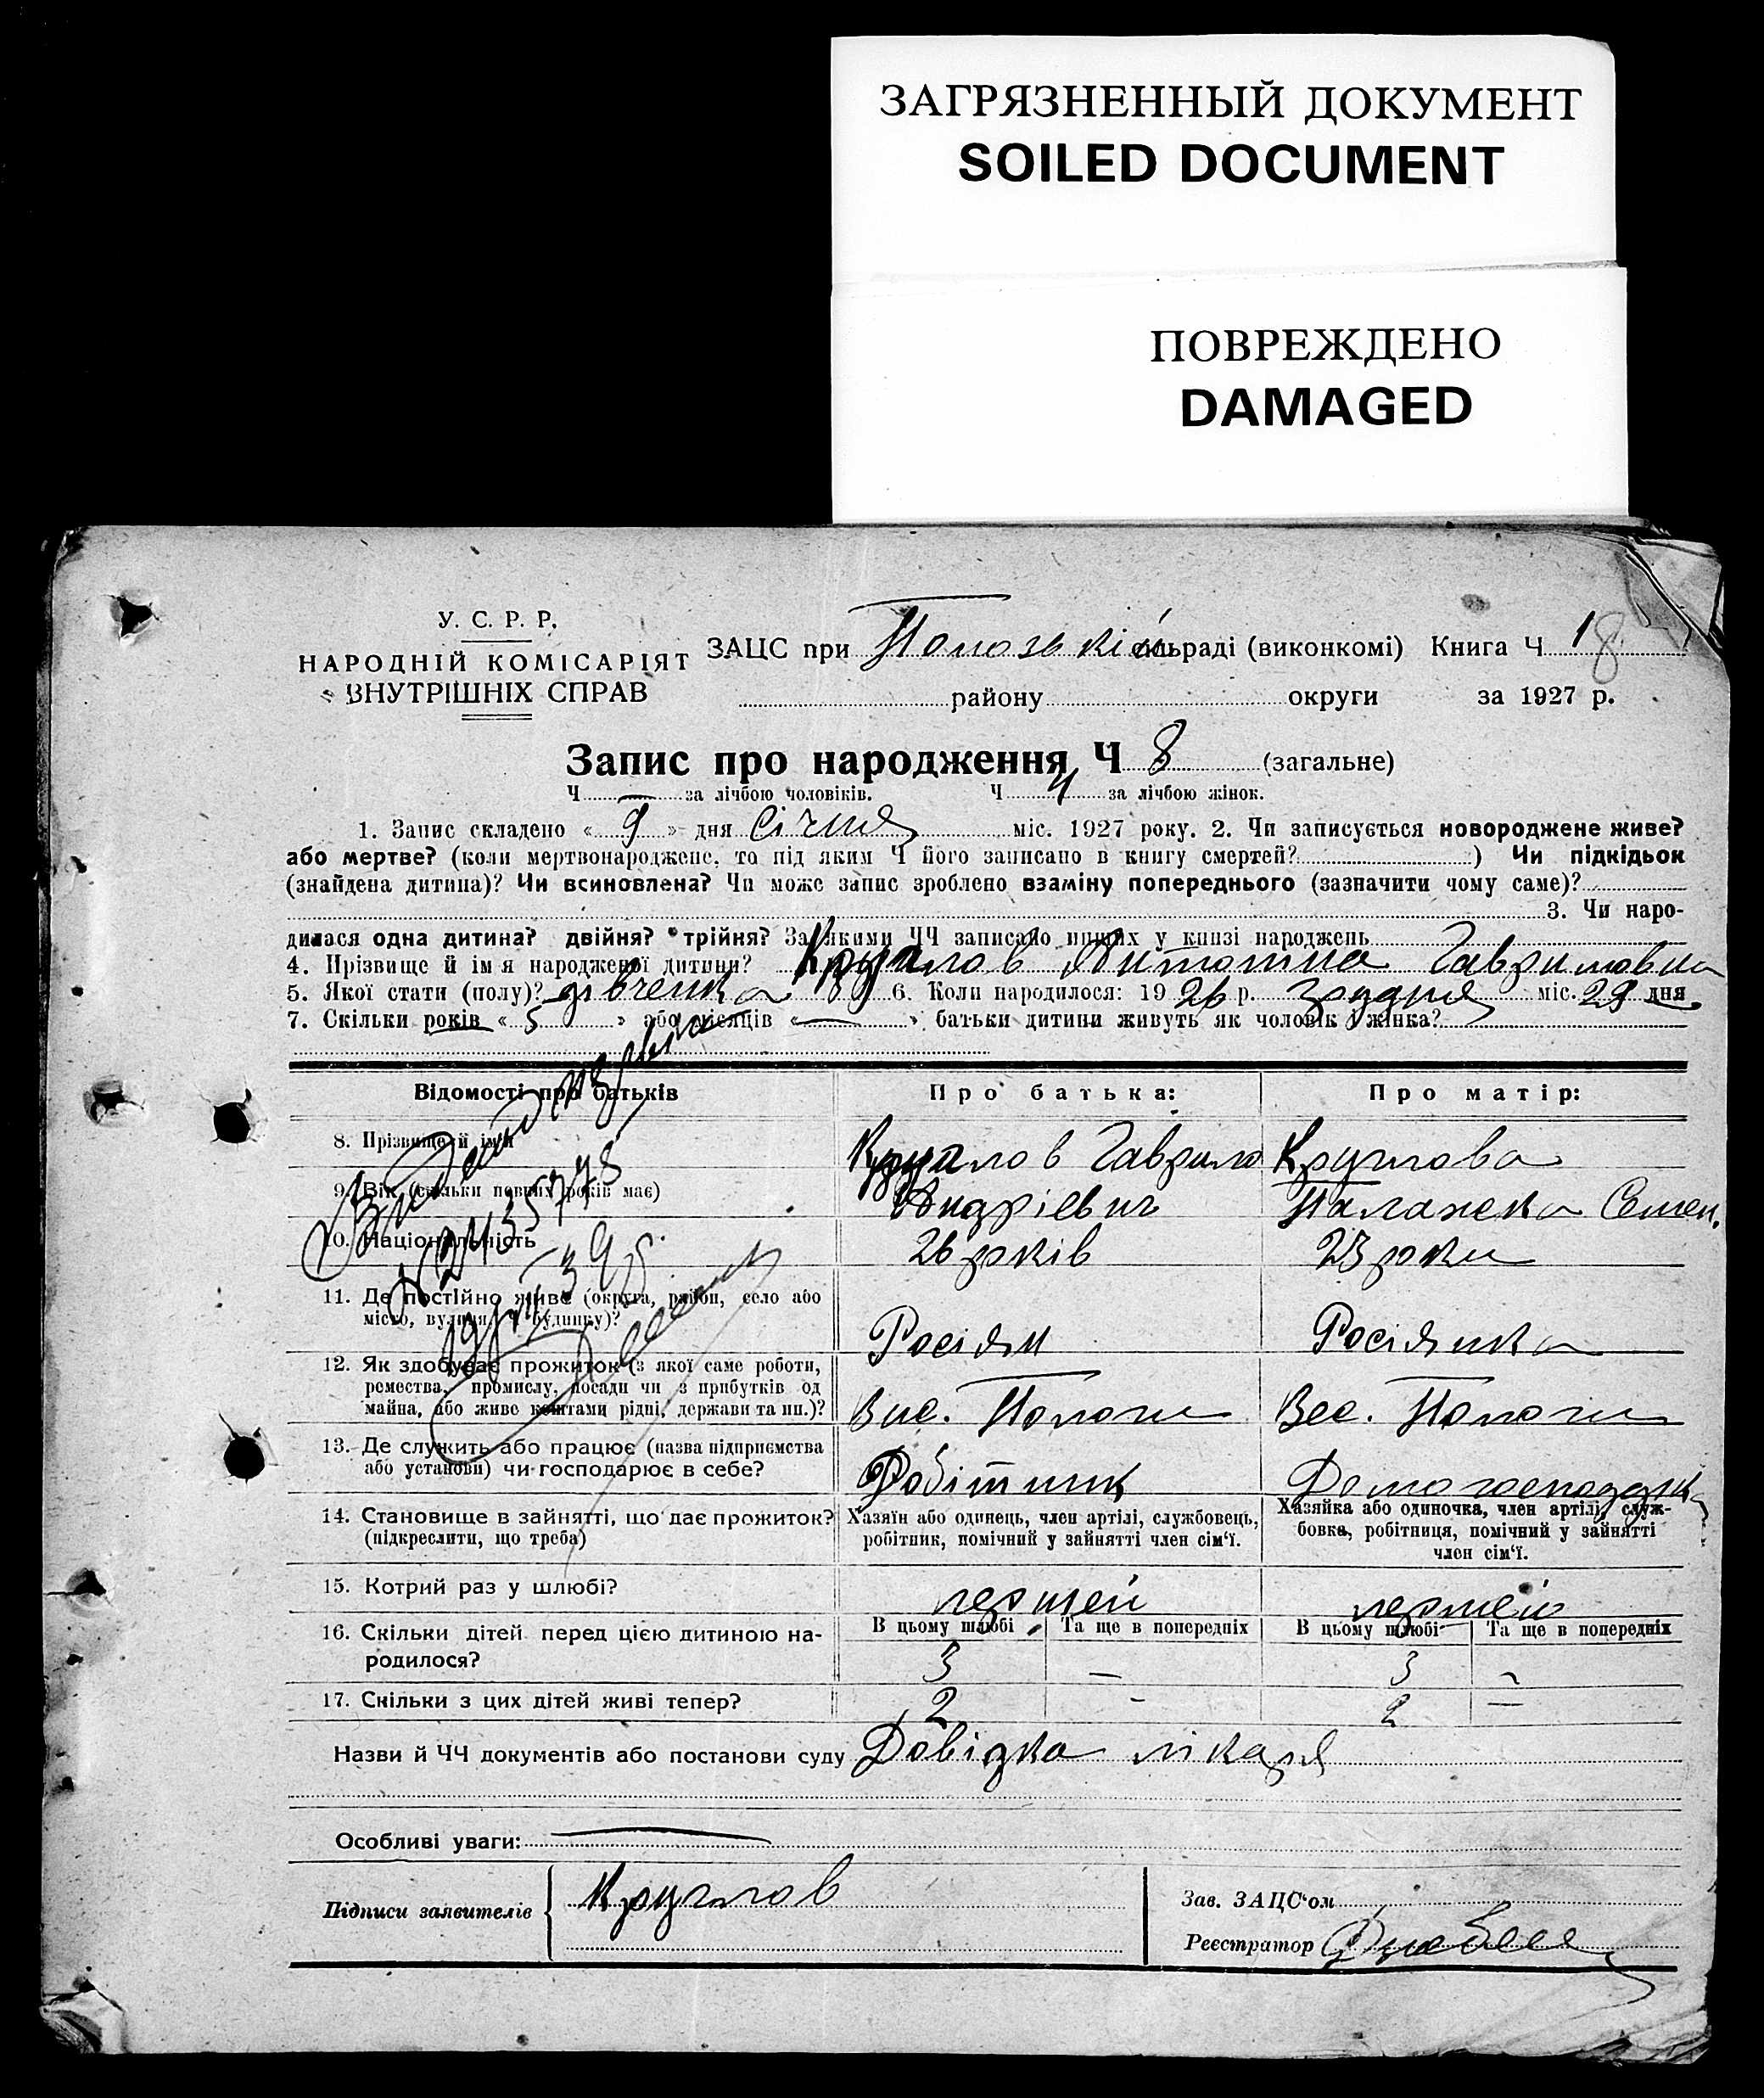 ЗАГРЯЗНЕННЫЙ ДОКУМЕНТ
SOILED DOCUMENT
ПОВРЕЖДЕНО
DAMAGED
У. С. Р. Р.
НАРОДНІЙ КОМІСАРІЯТ
ВНУТРІШНІХ СПРАВ
ЗАЦС при Пологзькій сільраді (виконкомі) Книга Ч 1 8
району округи за 1927 р.
Запис про народження Ч 8 (загальне)
Ч — за лічбою чоловіків. Ч 4 за лічбою жінок.
1. Запис складено « 9 » дня Січня міс. 1927 року. 2. Чи записується новороджене живе?
або мертве? (коли мертвонароджене, то під яким Ч його записано в книгу смертей? ) Чи підкідьок
(знайдена дитина)? Чи всиновлена? Чи може запис зроблено взаміну попереднього (зазначити чому саме)?
3. Чи наро-
дилася одна дитина? двійня? трійня? За якими ЧЧ записано инших у книзі народжень
4. Прізвище й ім'я народженої дитини? Круглов Антонина Гавриловна
5. Якої стати (полу)? дівченка 6. Коли народилося: 19 26 р. грудня міс. 29 дня
7. Скільки років « 5 » або місяців « — » батьки дитини живуть як чоловік і жінка?
Відомості про батьків
Про батька:
Про матір:
8. Прізвище й ім'я
Круглов Гаврило
Круглова
9. Вік (скільки повних років має)
Андрієвич
Палажка Семен.
10. Національність
26 років
23 роки
11. Де постійно живе (округа, район, село або
місто, вулиця, Ч будинку)?
Росіян
Росіянка
12. Як здобуває прожиток (з якої саме роботи,
ремества, промислу, посади чи з прибутків од
майна, або живе коштами рідні, держави та ин.)?
Вис. Пологи
Вес. Пологи
13. Де служить або працює (назва підприємства
або установи) чи господарює в себе?
Робітник
Домогосподарка
14. Становище в зайнятті, що дає прожиток?
(підкреслити, що треба)
Хазяїн або одинець, член артілі, службовець,
робітник, помічний у зайнятті член сім'ї.
Хазяйка або одиночка, член артілі, служ-
бовка, робітниця, помічний у зайнятті
член сім'ї.
15. Котрий раз у шлюбі?
першей
першей
16. Скільки дітей перед цією дитиною на-
родилося?
В цьому шлюбі
Та ще в попередніх
В цьому шлюбі
Та ще в попередніх
3 — 3 —
17. Скільки з цих дітей живі тепер?
2 - 2 —
Назви й ЧЧ документів або постанови суду Довідка лікаря
Особливі уваги:
Підписи заявителів
Круглов
Зав. ЗАЦС'ом
Реєстратор